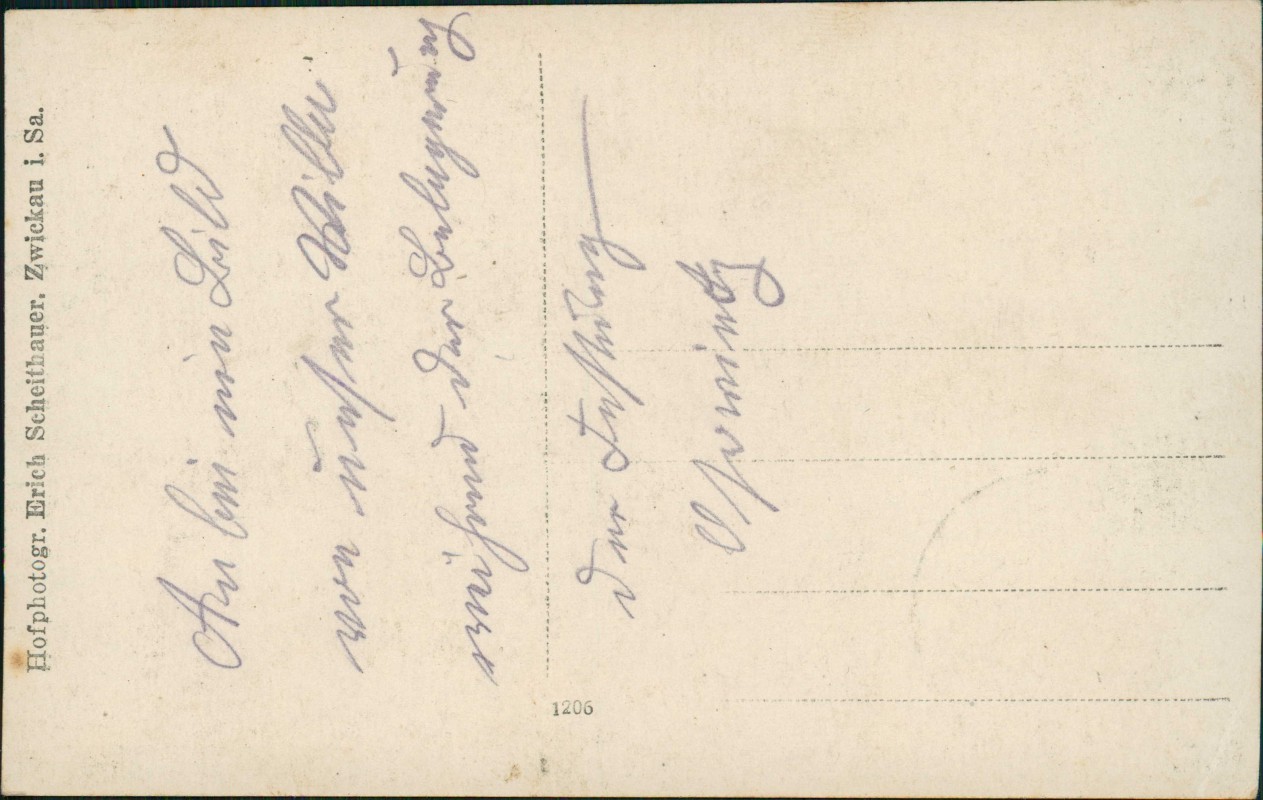 Hofphotogr. Erich Scheithauer, Zwickau i. Sa.
An bei ein Bild
von unserer
während der Belagerung
der Festung
Osowietz
1206